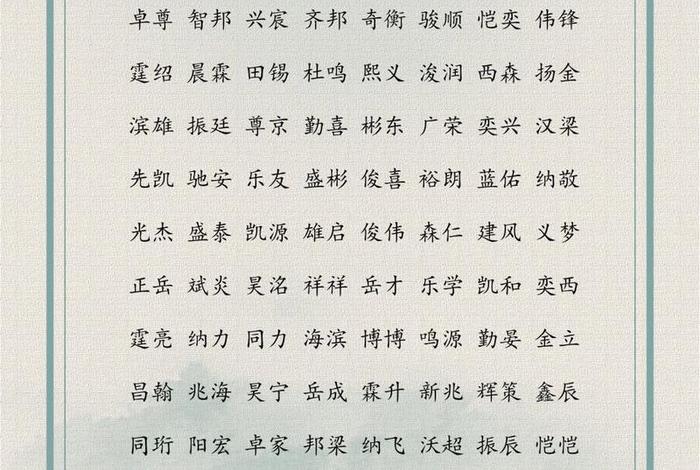 卓尊 智邦 兴宸 齐邦 奇衡 骏顺 恺奕 伟锋
霆绍 晨霖 田锡 杜鸣 熙义 浚润 西森 扬金
滨雄 振廷 尊京 勤喜 彬东 广荣 奕兴 汉梁
先凯 驰安 乐友 盛彬 俊喜 裕朗 蓝佑 纳敬
光杰 盛泰 凯源 雄启 俊伟 森仁 建风 义梦
正岳 斌炎 昊洺 祥祥 岳才 乐学 凯和 奕西
霆亮 纳力 同力 海滨 博博 鸣源 勤晏 金立
昌翰 兆海 昊宁 岳成 霖升 新兆 辉策 鑫辰
同珩 阳宏 卓家 邦梁 纳飞 沃超 振辰 恺恺